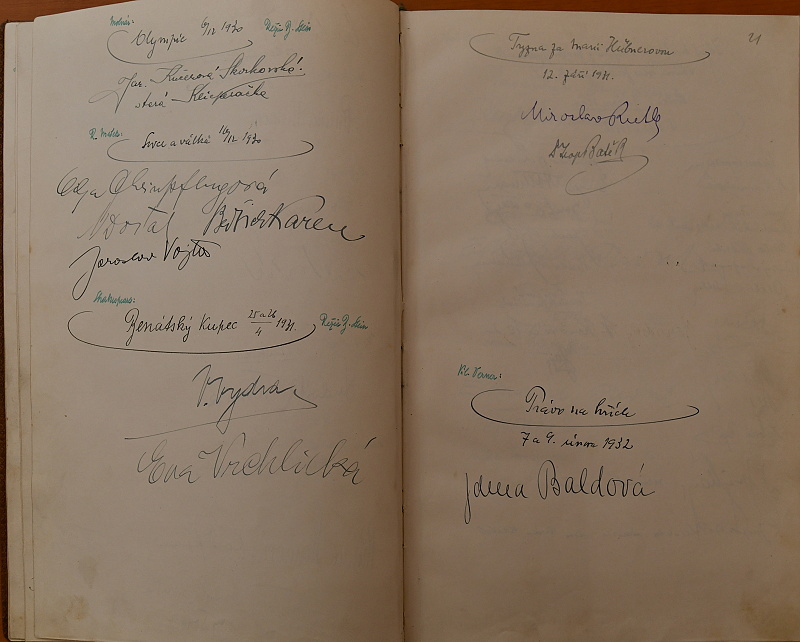 Molnár:
Olympie 6/IX 1930 Režie B. Stein
Jar. Kučerová Skorkovská!
stará
R. Medek:
Srdce a válka 1930
Olga Scheinpflugová
Dostal Bedřich Karen
Jaroslav Vojta
Shakespeare:
Benátský Kupec 25 a 26/4 1931. Režie B. Stein
V. Vydra
Eva Vrchlická
21
Tryzna za Marii Hübnerovou
12. září 1931.
Vil. Werner:
Právo na hřích
7 a 9. února 1932
Jarma Baldová